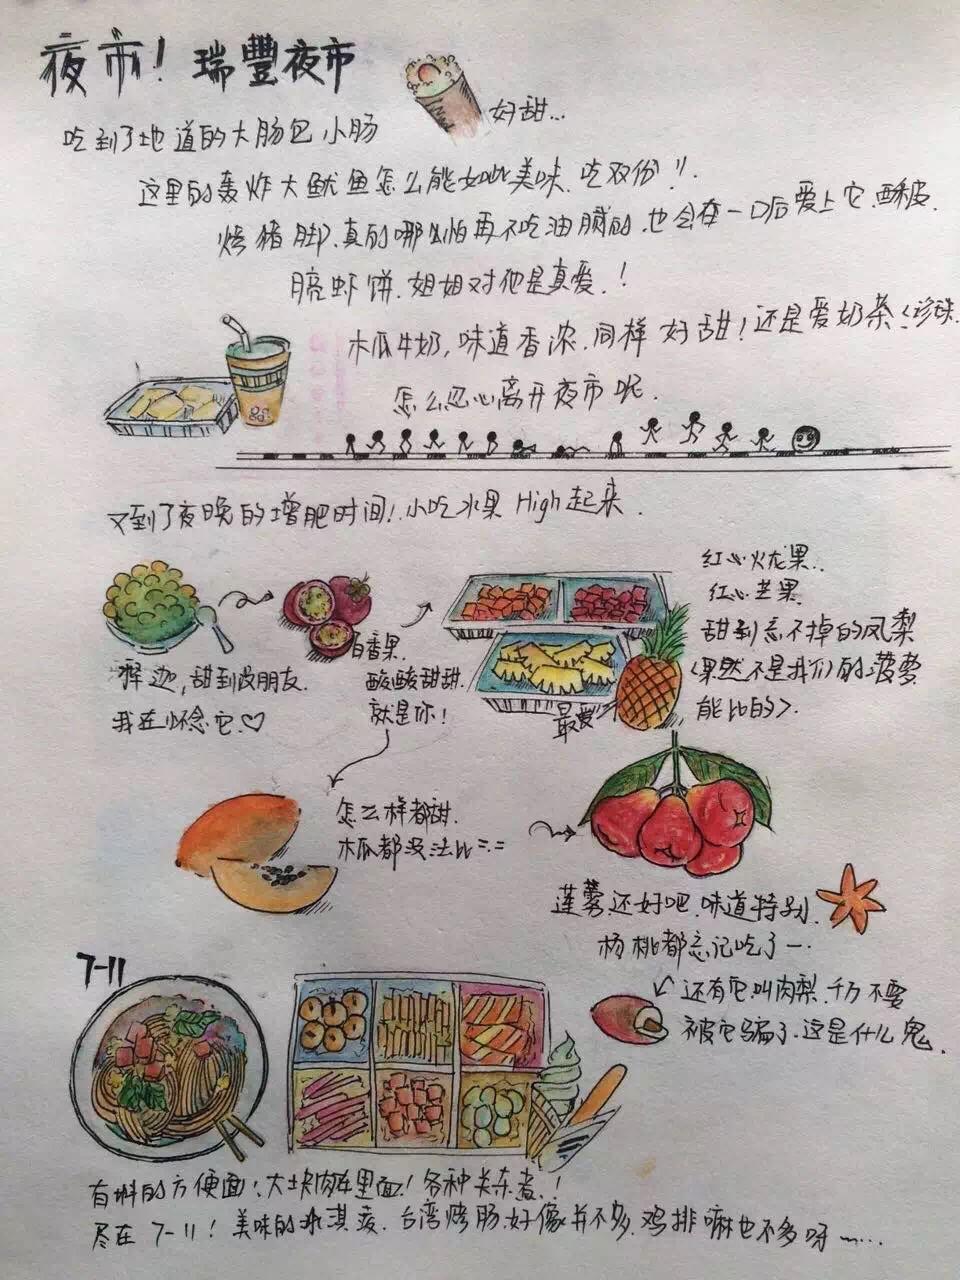 夜市！瑞豐夜市
吃到了地道的大肠包小肠
好甜...
这里的轰炸大鱿鱼怎么能如此美味.吃双份!!
烤猪脚.真的哪怕再不吃油腻的.也会在一口后爱上它.酥皮.
月亮虾饼.姐姐对他是真爱.!
木瓜牛奶,味道香浓.同样好甜!还是爱奶茶(珍珠
怎么忍心离开夜市呢.
又到了夜晚的增肥时间!小吃水果High起来.
释迦,甜到没朋友.
我在怀念它.♡
百香果.
酸酸甜甜.
就是你!
红心火龙果.
红心芒果.
甜到忘不掉的凤梨
(果然不是我们的菠萝
能比的>.
最爱
怎么样都甜.
木瓜都没法比=.=
莲雾还好吧.味道特别.
杨桃都忘记吃了一.
还有它叫肉梨.千万不要
被它骗了.这是什么鬼.
7-11
有料的方便面!大块肉在里面!各种关东煮.!
尽在7-11!美味的冰淇凌.台湾烤肠好像并不多.鸡排嘛也不多呀~....